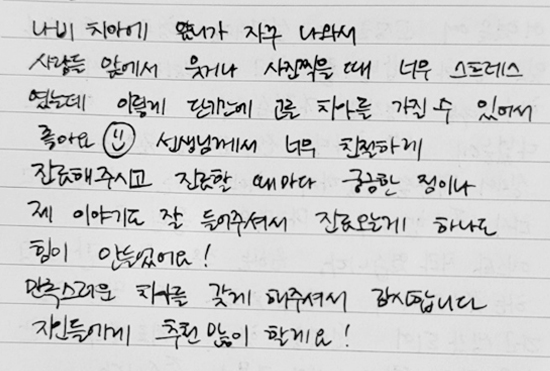 나비 치아에 앞니가 자꾸 나와서
사람들 앞에서 웃거나 사진찍을 때 너무 스트레스
였는데 이렇게 단기간에 고른 치아를 가질 수 있어서
좋아요 선생님께서 너무 친절하게
진료해주시고 진료할 때마다 궁금한 점이나
제 이야기도 잘 들어주셔서 진료오는게 하나도
힘이 안들었어요!
만족스러운 치아를 갖게 해주셔서 감사합니다
지인들에게 추천 많이 할게요!